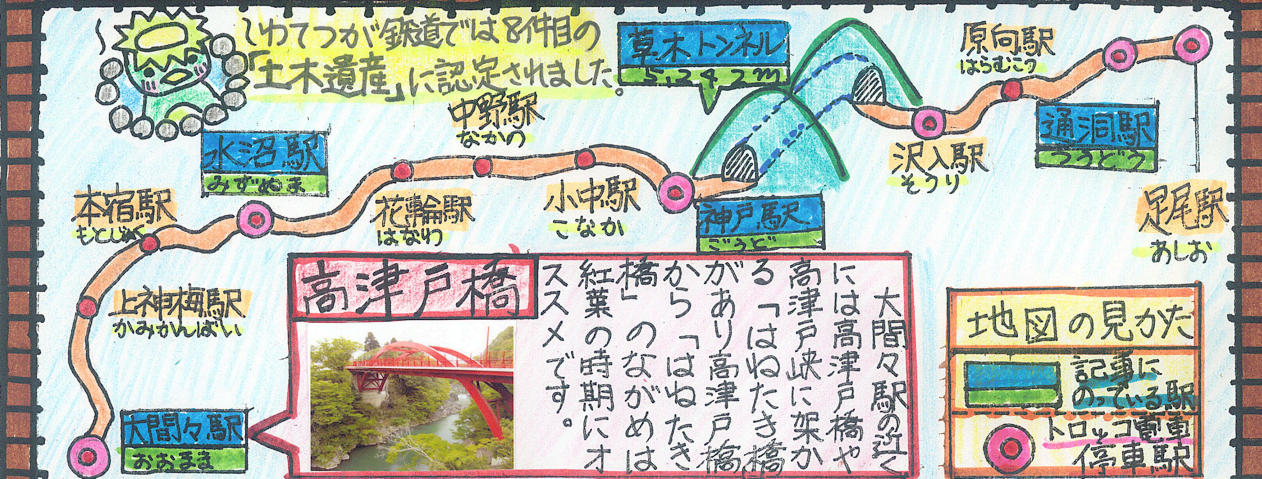 いわてつが鉄道では8件目の
「土木遺産」に認定されました。
草木トンネル
5,242m
原向駅
はらむこう
通洞駅
つうどう
足尾駅
あしお
沢入駅
そうり
神戸駅
ごうど
小中駅
こなか
中野駅
なかの
花輪駅
はなわ
水沼駅
みずぬま
本宿駅
もとじゅく
上神梅駅
かみかんばい
大間々駅
おおまま
高津戸橋
大間々駅の近く
には高津戸橋や
高津戸峡に架か
る「はねたき橋」
があり高津戸橋
から「はねたき
橋」のながめは
紅葉の時期にオ
ススメです。
地図の見かた
記事に
のっている駅
トロッコ電車
停車駅